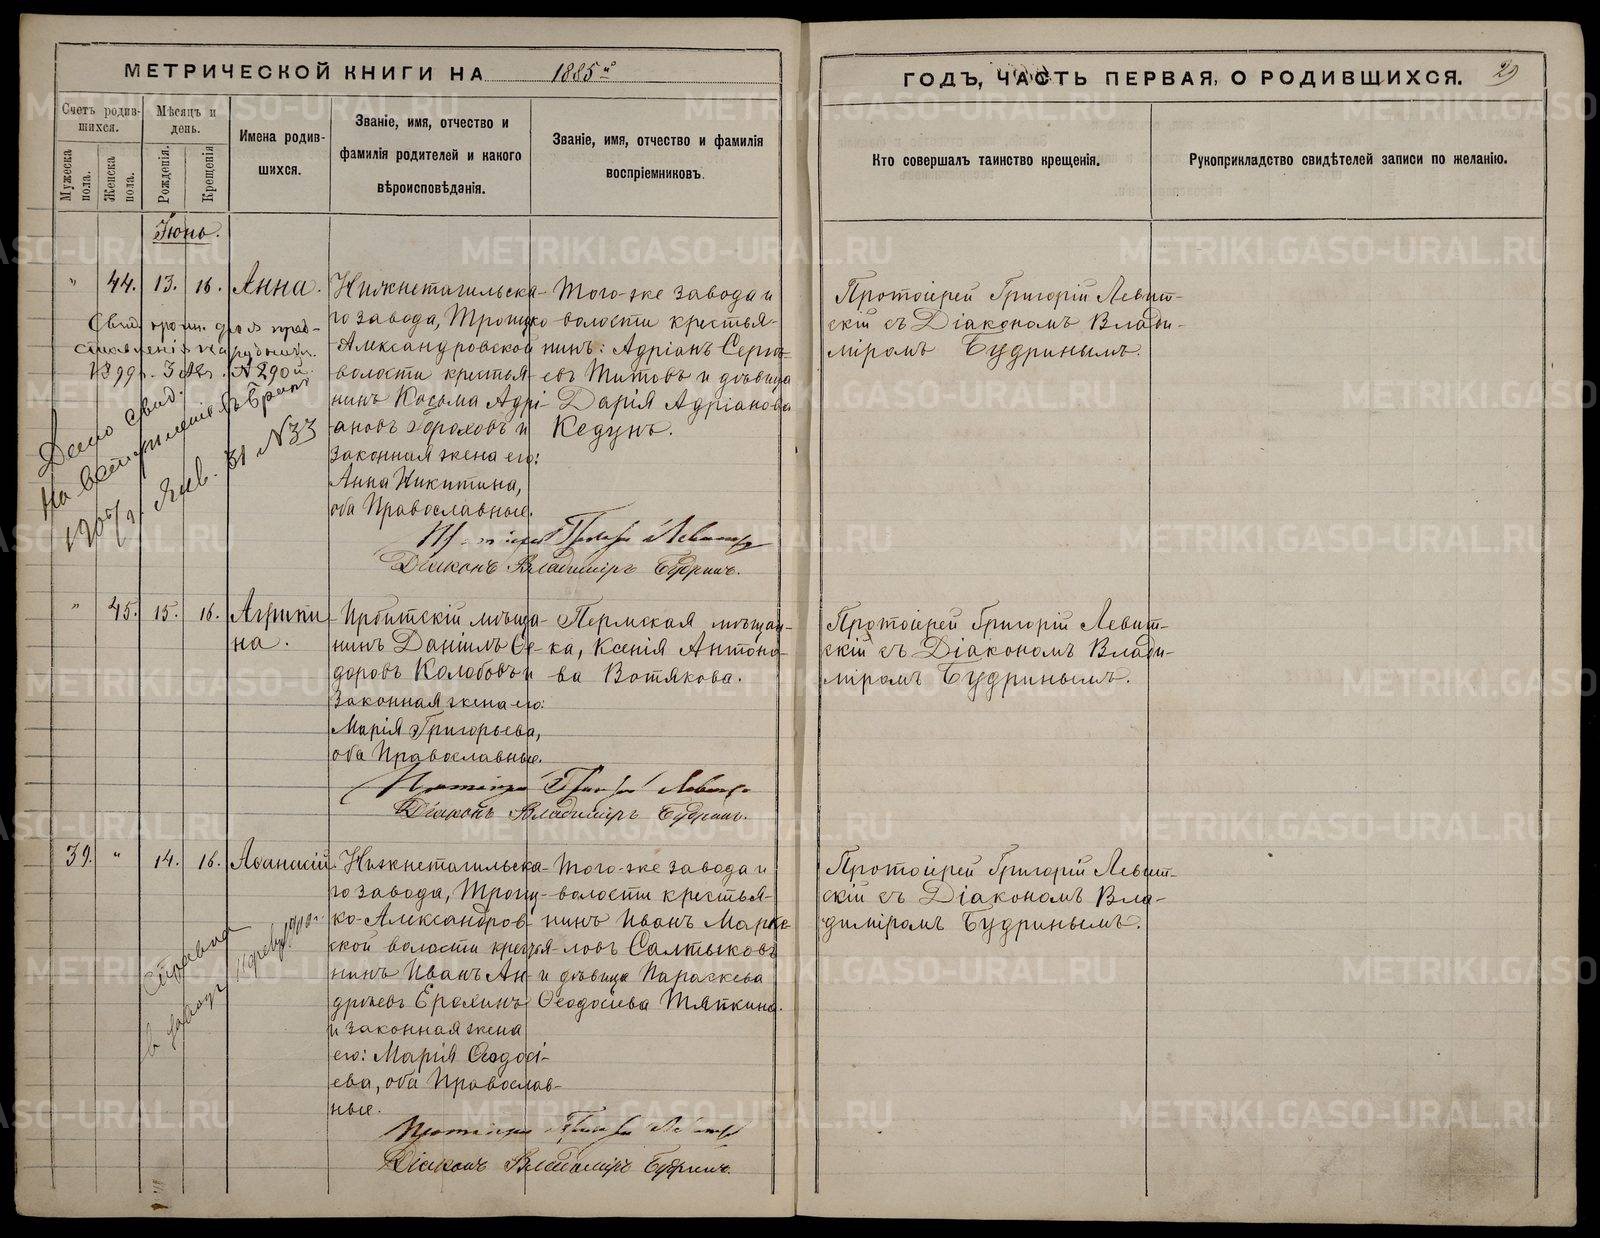 МЕТРИЧЕСКОЙ КНИГИ НА 1885й
ГОДЪ, ЧАСТЬ ПЕРВАЯ, О РОДИВШИХСЯ. 29
Счетъ родив-
шихся.
Мужеска пола.
Женска пола.
Мѣсяцъ и
день.
Рожденія.
Крещенія
Имена родив-
шихся.
Званіе, имя, отчество и
фамилія родителей и какого
вѣроисповѣданія.
Званіе, имя, отчество и фамилія
воспріемниковъ.
Кто совершалъ таинство крещенія.
Рукоприкладство свидѣтелей записи по желанію.
Іюнь.
" 44. 13. 16. Анна.
Нижнетагильска-
го завода, Троицко-
Александровской
волости крестья-
нинъ Косьма Адрі-
ановъ Гороховъ и
законная жена его:
Анна Никитина,
оба Православные.
Того-же завода и
волости крестья-
нинъ: Адріанъ Серге-
евъ Титовъ и дѣвица
Дарія Адріанова
Кедунъ.
Протоіерей Григорій Левит-
скій съ Діакономъ Влади-
міромъ Будринымъ.
Дано свид.
на вступленіе въ бракъ
Янв. 31 №33
Діаконъ Владиміръ Будринъ.
" 45. 15. 16. Агрипи-
на.
Ирбитскій мѣща-
нинъ Даніилъ Ѳе-
доровъ Колобовъ и
законная жена его:
Марія Григорьева,
оба Православные.
Пермская мѣщан-
ка, Ксенія Антоно-
ва Вотякова.
Протоіерей Григорій Левит-
скій съ Діакономъ Влади-
міромъ Будринымъ.
Діаконъ Владиміръ Будринъ.
39. " 14. 16. Аѳанасій
Нижнетагильска-
го завода, Троиц-
ко-Александров-
ской волости крестья-
нинъ Иванъ Ан-
дреевъ Ерохинъ
и законная жена
его: Марія Ѳеодосі-
ева, оба Православ-
ные.
Того-же завода и
волости крестья-
нинъ Иванъ Марке-
ловъ Салтыковъ
и дѣвица Параскева
Ѳеодосіева Тяпкина.
Протоіерей Григорій Левит-
скій съ Діакономъ Вла-
диміромъ Будринымъ.
Справка
Діаконъ Владиміръ Будринъ.
METRIKI.GASO-URAL.RU